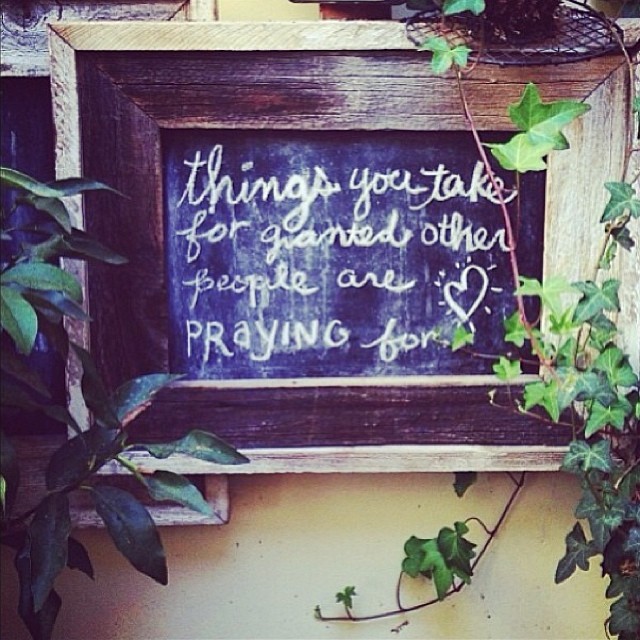 things you take
for granted other
people are
PRAYING for